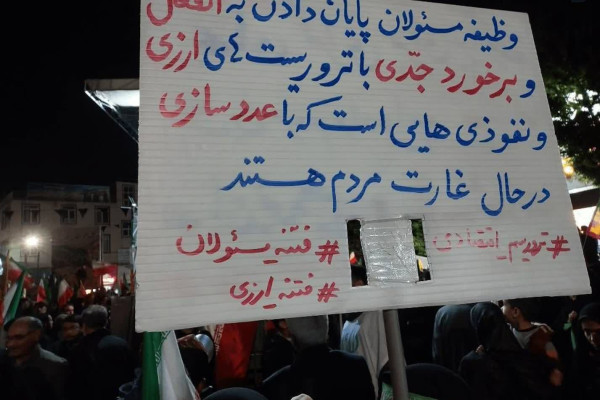 وظیفه مسئولان پایان دادن به انفعال
و برخورد جدّی با تروریست‌های ارزی
و نفوذی هایی است که با عددسازی
درحال غارت مردم هستند
#تروریسم_اقتصادی #فتنه_مسئولان
#فتنه_ارزی